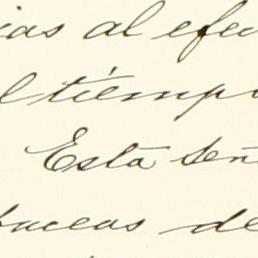 ias al efec
l tiempo
Esta señ
buceas de